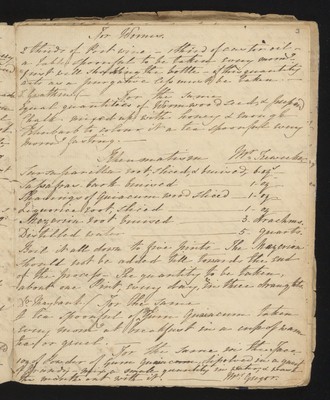 3
For Worms.
2 thirds of Port wine, - 1 third of castor oil -
a table spoonful to be taken every morng
just well shaking the bottle - if this quantity
acts as a purgative less must be taken
For the Same
Equal quantities of Wormwood Seeds, & prepd
Chalk mixed up with honey & enough
Rhubarb to colour it a tea spoonful every
morng fasting -
Rheumatism Mrs
Sarsaparilla root sliced & bruised, 6 ozs
Sassafras bark bruised 1 oz
Shavings of Guaiacum wood sliced 1 oz
Liquorice root, sliced 1 oz
Mezereon root bruised 3 drachms,
Distilled water 5 quarts
Boil it all down to five pints - The Mezereon
should not be added till towards the end
of the process - The quantity to be taken,
about one Pint, every day, in three draughts
For the Same
A tea spoonful of Gum Guaiacum taken
every morng at breakfast in a cup of warm
tea, or gruel.
For the same in the Face
of Powder of Gum Guaiacum, dissolved in a
of Brandy, a small quantity in water, & rinse
the mouth out with it. Mrs